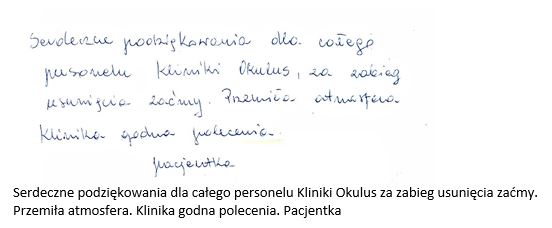 Serdeczne podziękowania dla całego
personelu Kliniki Okulus, za zabieg
usunięcia zaćmy. Przemiła atmosfera
Klinika godna polecenia.
pacjentka
Serdeczne podziękowania dla całego personelu Kliniki Okulus za zabieg usunięcia zaćmy.
Przemiła atmosfera. Klinika godna polecenia. Pacjentka